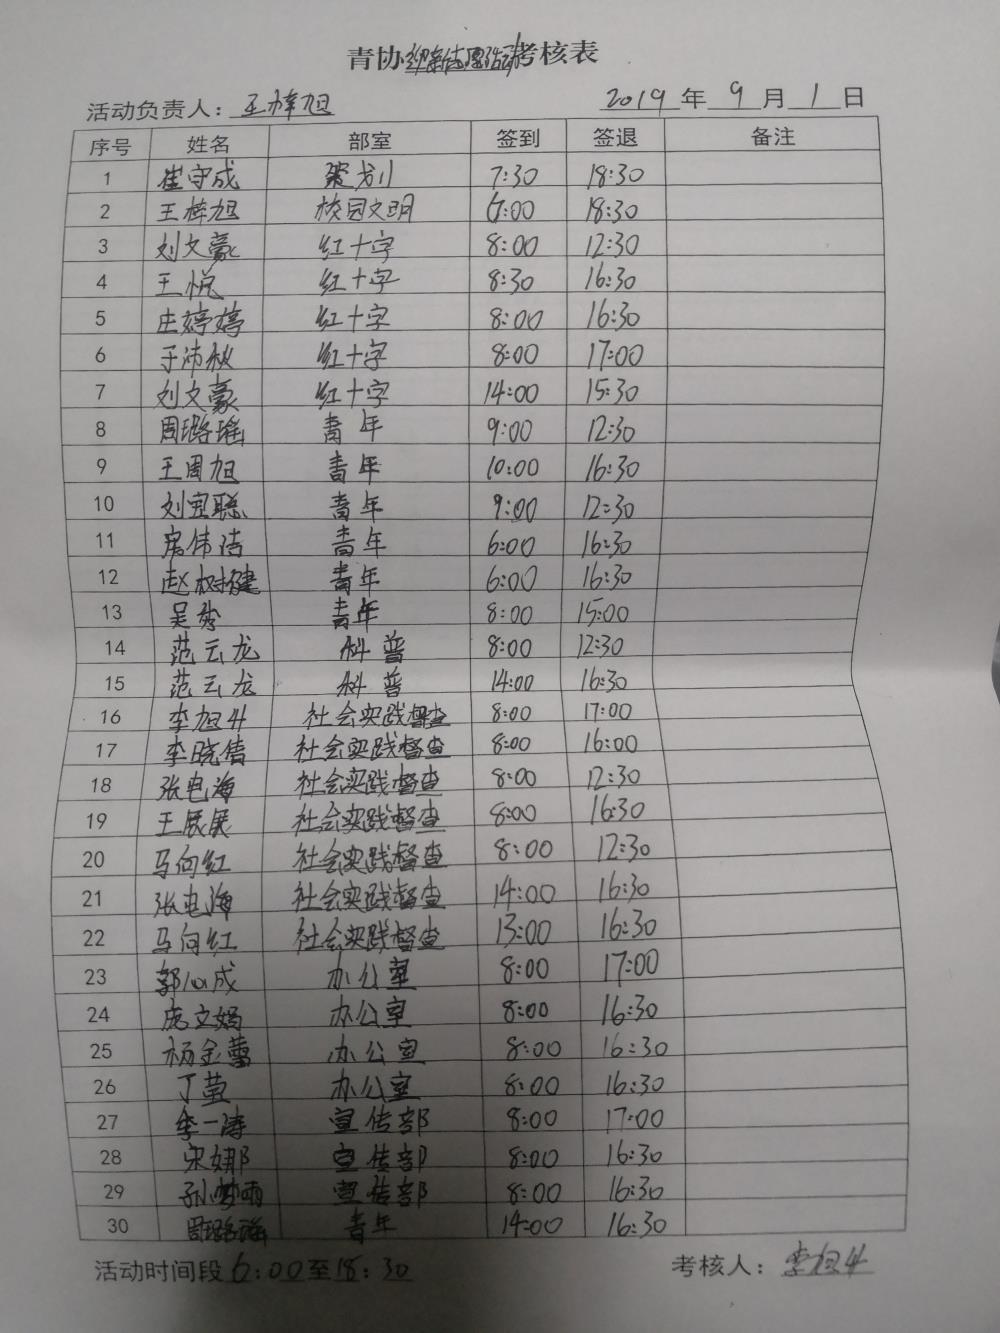 青协迎新志愿活动考核表
活动负责人：王梓旭 2019年9月1日
序号 姓名 部室 签到 签退 备注
1 崔守成 策划 7:30 18:30
2 王梓旭 校园文明 6:00 18:30
3 刘文豪 红十字 8:00 12:30
4 王悦 红十字 8:30 16:30
5 庄婷婷 红十字 8:00 16:30
6 于沛秋 红十字 8:00 17:00
7 刘文豪 红十字 14:00 15:30
8 周璐瑶 青年 9:00 12:30
9 王周旭 青年 10:00 16:30
10 刘宜聪 青年 9:00 12:30
11 席伟洁 青年 6:00 16:30
12 赵树健 青年 6:00 16:30
13 吴秀 青年 8:00 15:00
14 范云龙 科普 8:00 12:30
15 范云龙 科普 14:00 16:30
16 李旭升 社会实践督查 8:00 17:00
17 李晓倩 社会实践督查 8:00 16:00
18 张电海 社会实践督查 8:00 12:30
19 王展展 社会实践督查 8:00 16:30
20 马向红 社会实践督查 8:00 12:30
21 张电海 社会实践督查 14:00 16:30
22 马向红 社会实践督查 13:00 16:30
23 郭心成 办公室 8:00 17:00
24 庞文娟 办公室 8:00 16:30
25 杨金蕾 办公室 8:00 16:30
26 丁莹 办公室 8:00 16:30
27 李一涛 宣传部 8:00 17:00
28 宋娜 宣传部 8:00 16:30
29 孙梦雨 宣传部 8:00 16:30
30 周璐瑶 青年 14:00 16:30
活动时间段6:00至18:30 考核人：李旭升